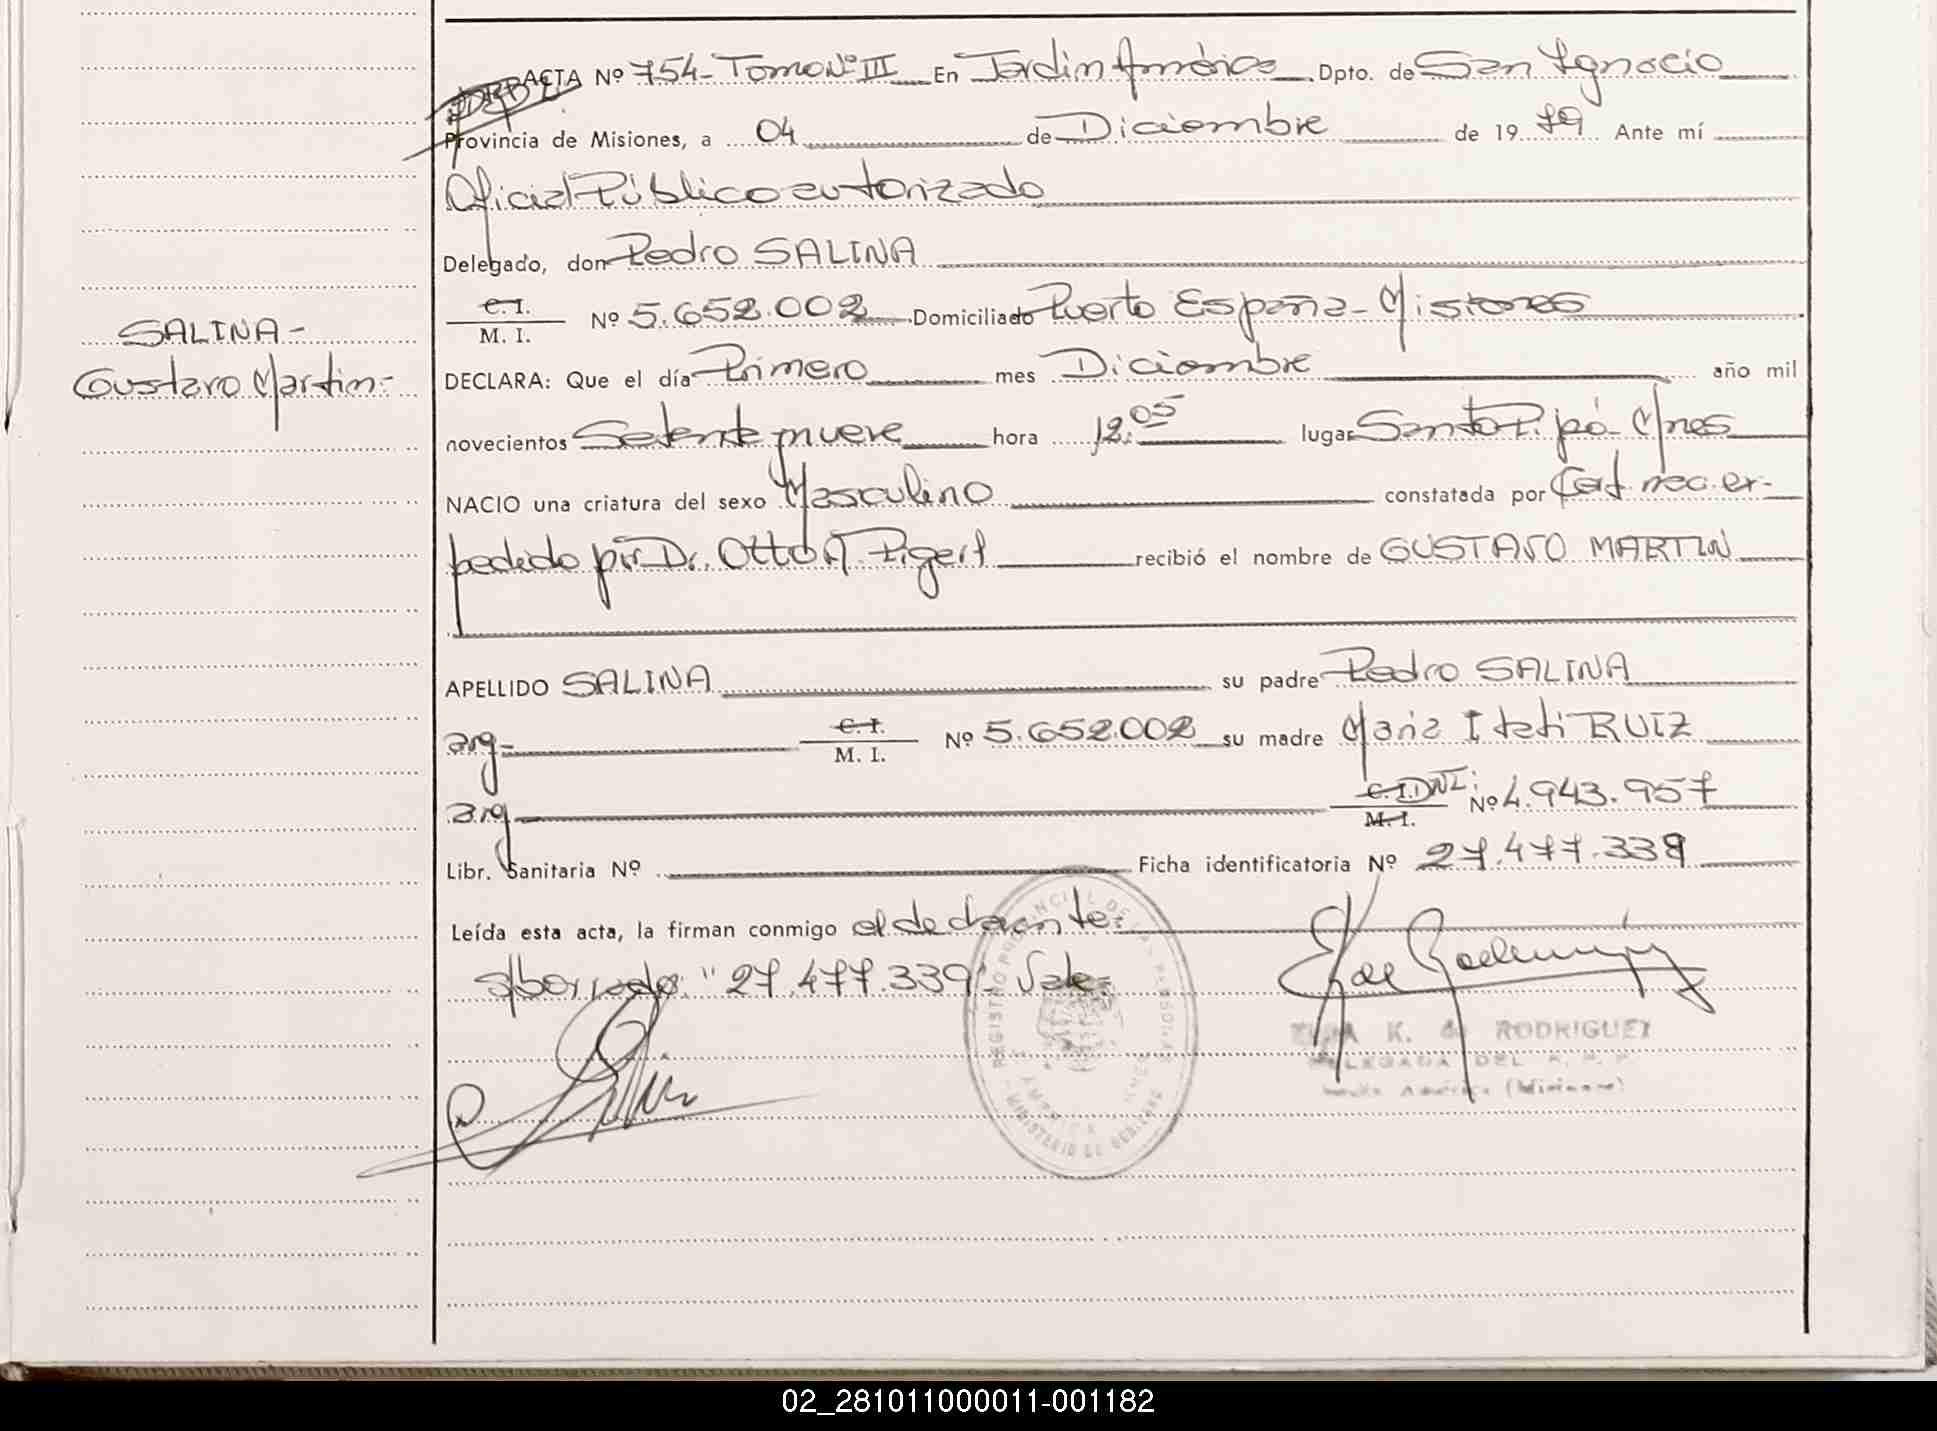 ACTA Nº 754- Tomo Nº III En Jardin América Dpto. de San Ignacio
Provincia de Misiones, a 04 de Diciembre de 1979 Ante mí
Oficial Público autorizado
Delegado, don Pedro SALINA
C. I.
M. I. Nº 5.652.002 Domiciliado Puerto España - Misiones
SALINA -
Gustavo Martin.-
DECLARA: Que el día Primero mes Diciembre año mil
novecientos Setenta y nueve hora 12.05 lugar Santo Pipó Mnes
NACIO una criatura del sexo Masculino constatada por Cert. med. ex-
pedido por Dr. Otto A. recibió el nombre de GUSTAVO MARTIN
APELLIDO SALINA su padre Pedro SALINA
arg- C. I. M. I. Nº 5.652.002 su madre Maria Itati RUIZ
arg C. I. DNI: M. I. Nº 4.943.957
Libr. Sanitaria Nº Ficha identificatoria Nº 27.477.339
Leída esta acta, la firman conmigo el declarante.
s/borrado: "27.477.339" Vale.
REGISTRO PROVINCIAL DE LAS PERSONAS
MINISTERIO DE GOBIERNO
K. de RODRIGUEZ
DELEGADA DEL R. P. P.
América (Misiones)
02_281011000011-001182